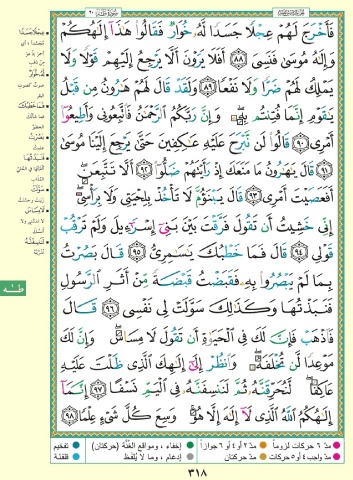 فَأَخْرَجَ لَهُمْ عِجْلًا جَسَدًا لَّهُۥ خُوَارٌ فَقَالُوا۟ هَٰذَآ إِلَٰهُكُمْ
وَإِلَٰهُ مُوسَىٰ فَنَسِىَ ٨٨ أَفَلَا يَرَوْنَ أَلَّا يَرْجِعُ إِلَيْهِمْ قَوْلًا وَلَا
يَمْلِكُ لَهُمْ ضَرًّا وَلَا نَفْعًا ٨٩ وَلَقَدْ قَالَ لَهُمْ هَٰرُونُ مِن قَبْلُ
يَٰقَوْمِ إِنَّمَا فُتِنتُم بِهِۦ وَإِنَّ رَبَّكُمُ ٱلرَّحْمَٰنُ فَٱتَّبِعُونِى وَأَطِيعُوٓا۟
أَمْرِى ٩٠ قَالُوا۟ لَن نَّبْرَحَ عَلَيْهِ عَٰكِفِينَ حَتَّىٰ يَرْجِعَ إِلَيْنَا مُوسَىٰ
٩١ قَالَ يَٰهَٰرُونُ مَا مَنَعَكَ إِذْ رَأَيْتَهُمْ ضَلُّوٓا۟ ٩٢ أَلَّا تَتَّبِعَنِ
أَفَعَصَيْتَ أَمْرِى ٩٣ قَالَ يَبْنَؤُمَّ لَا تَأْخُذْ بِلِحْيَتِى وَلَا بِرَأْسِىٓ
إِنِّى خَشِيتُ أَن تَقُولَ فَرَّقْتَ بَيْنَ بَنِىٓ إِسْرَٰٓءِيلَ وَلَمْ تَرْقُبْ
قَوْلِى ٩٤ قَالَ فَمَا خَطْبُكَ يَٰسَٰمِرِىُّ ٩٥ قَالَ بَصُرْتُ
بِمَا لَمْ يَبْصُرُوا۟ بِهِۦ فَقَبَضْتُ قَبْضَةً مِّنْ أَثَرِ ٱلرَّسُولِ
فَنَبَذْتُهَا وَكَذَٰلِكَ سَوَّلَتْ لِى نَفْسِى ٩٦ قَالَ
فَٱذْهَبْ فَإِنَّ لَكَ فِى ٱلْحَيَوٰةِ أَن تَقُولَ لَا مِسَاسَ وَإِنَّ لَكَ
مَوْعِدًا لَّن تُخْلَفَهُۥ وَٱنظُرْ إِلَىٰٓ إِلَٰهِكَ ٱلَّذِى ظَلْتَ عَلَيْهِ
عَاكِفًا لَّنُحَرِّقَنَّهُۥ ثُمَّ لَنَنسِفَنَّهُۥ فِى ٱلْيَمِّ نَسْفًا ٩٧ إِنَّمَآ
إِلَٰهُكُمُ ٱللَّهُ ٱلَّذِى لَآ إِلَٰهَ إِلَّا هُوَ وَسِعَ كُلَّ شَىْءٍ عِلْمًا ٩٨
عِجْلًا جَسَدًا
لَهُ خُوَارٌ
فَمَا خَطْبُكَ
بَصُرْتُ
فَنَبَذْتُهَا
سَوَّلَتْ
لَا مِسَاسَ
لَنَنسِفَنَّهُ
طه
مدّ ٦ حركات لزوماً
مدّ ٢ أو ٤ أو ٦ جوازاً
إخفاء، ومواقع الغُنَّة (حركتان)
تفخيم
مدّ واجب ٤ أو ٥ حركات
مدّ حركتان
إدغام، وما لا يُلفظ
قلقلة
٣١٨